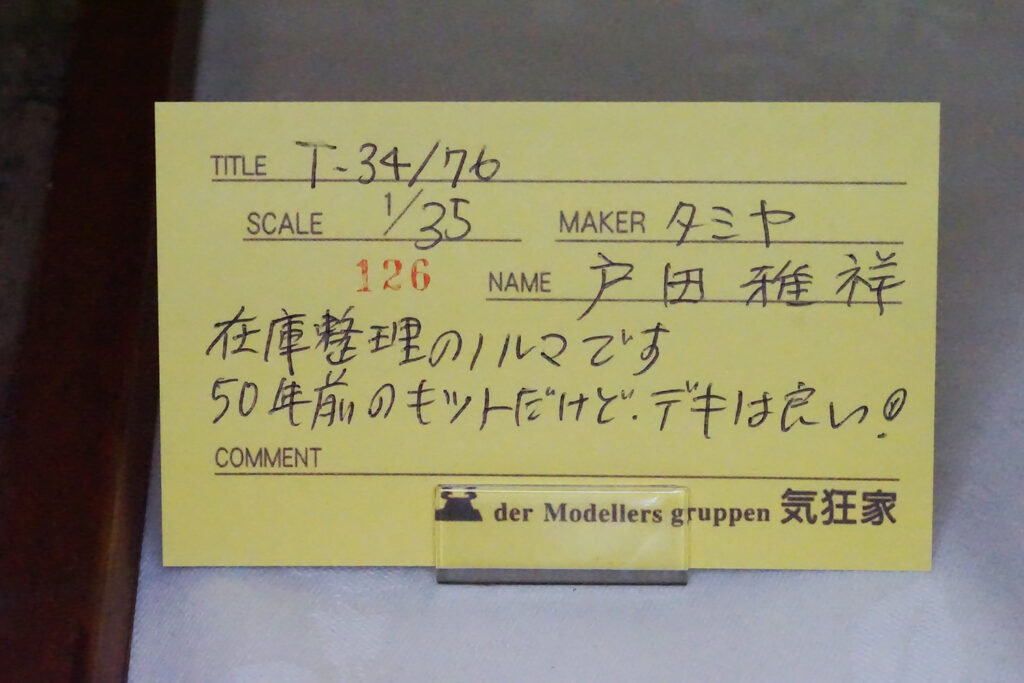 TITLE T-34/76
SCALE 1/35 MAKER タミヤ
126 NAME 戸田雅祥
在庫整理のノルマです
50年前のキットだけど.デキは良い!
COMMENT
der Modellers gruppen 気狂家